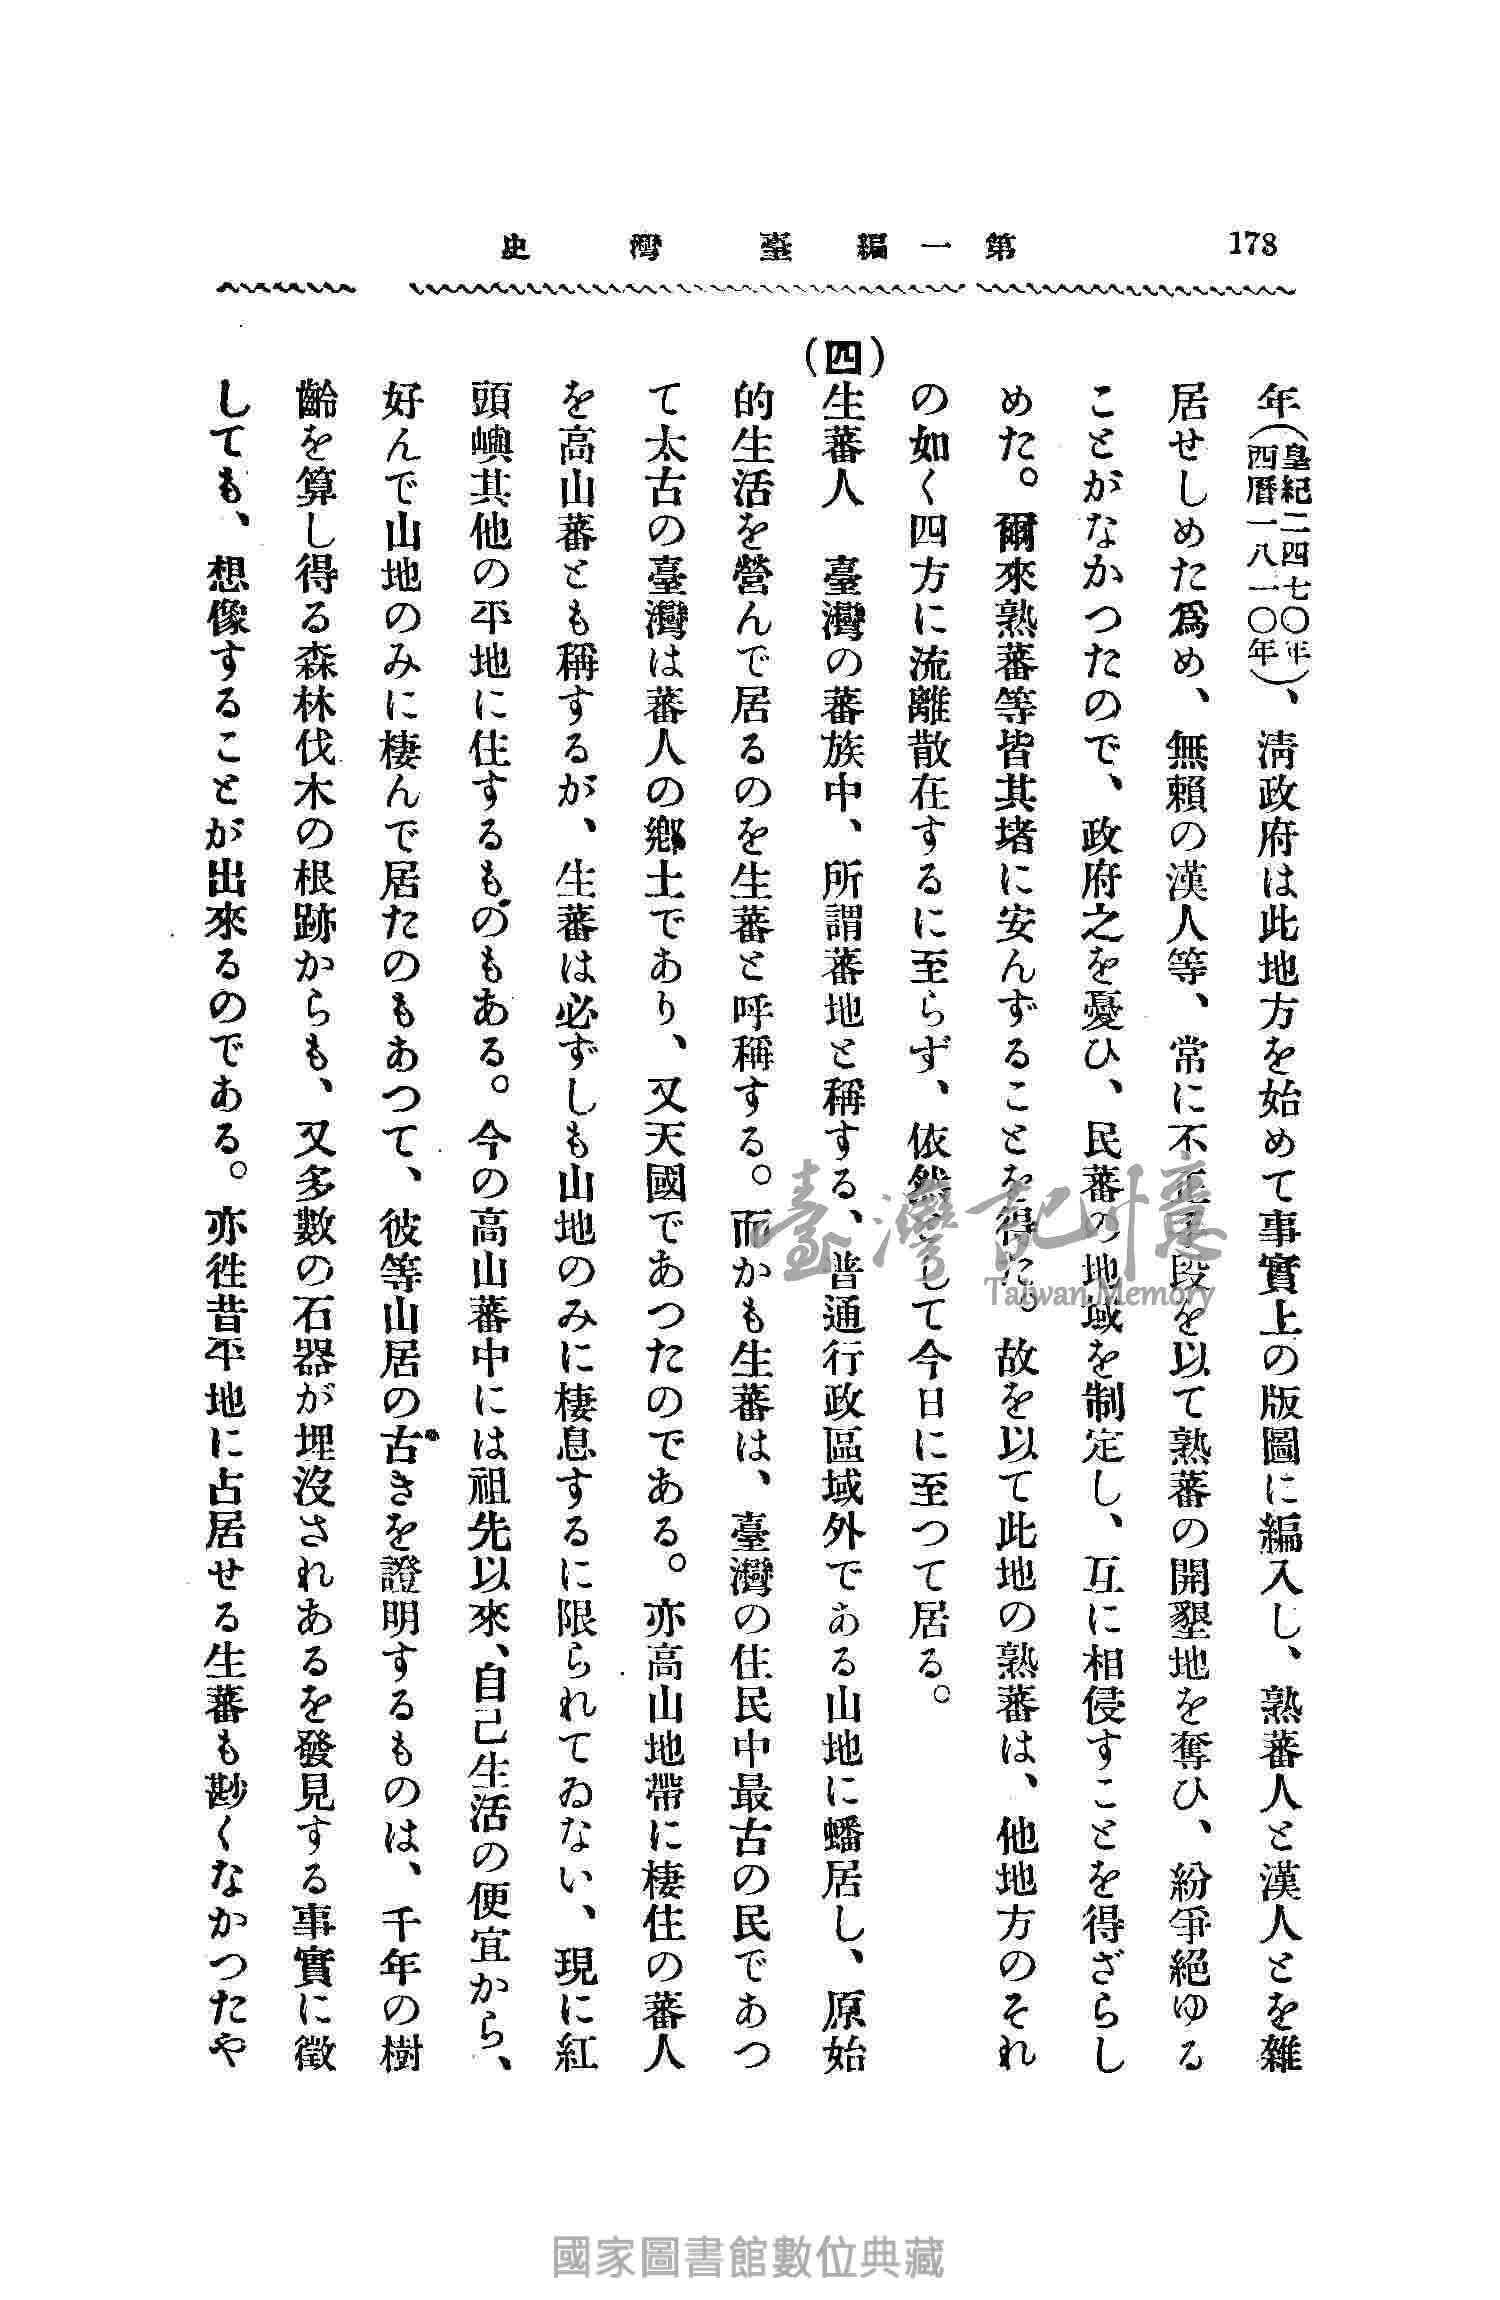 178
第一編 臺灣史
年(皇紀二四七〇年西曆一八一〇年)、淸政府は此地方を始めて事實上の版圖に編入し、熟蕃人と漢人とを雜
居せしめた爲め、無賴の漢人等、常に不正手段を以て熟蕃の開墾地を奪ひ、紛爭絕ゆる
ことがなかつたので、政府之を憂ひ、民蕃の地域を制定し、互に相侵すことを得ざらし
めた。爾來熟蕃等皆其堵に安んずることを得た。故を以て此地の熟蕃は、他地方のそれ
の如く四方に流離散在するに至らず、依然として今日に至つて居る。
(四)生蕃人 臺灣の蕃族中、所謂蕃地と稱する、普通行政區域外である山地に蟠居し、原始
的生活を營んで居るのを生蕃と呼稱する。而かも生蕃は、臺灣の住民中最古の民であつ
て太古の臺灣は蕃人の鄕土であり、又天國であつたのである。亦高山地帶に棲住の蕃人
を高山蕃とも稱するが、生蕃は必ずしも山地のみに棲息するに限られてゐない、現に紅
頭嶼其他の平地に住するものもある。今の高山蕃中には祖先以來、自己生活の便宜から、
好んで山地のみに棲んで居たのもあつて、彼等山居の古きを證明するものは、千年の樹
齡を算し得る森林伐木の根跡からも、又多數の石器が埋沒されあるを發見する事實に徵
しても、想像することが出來るのである。亦徃昔平地に占居せる生蕃も尠くなかつたや
臺灣記憶
Taiwan Memory
國家圖書館數位典藏